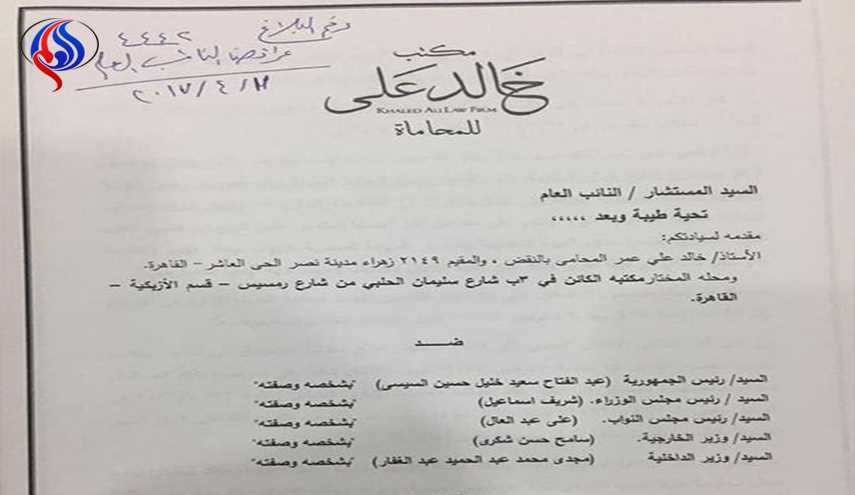 العالم
رقم البلاغ ٤٤٤٢
عرائض النائب العام
٢٠١٧/٤/١١
مكتب
خالد على
KHALED ALI LAW FIRM
للمحاماة
السيد المستشار / النائب العام
تحية طيبة وبعد ،،،،،
مقدمه لسيادتكم:
الأستاذ/ خالد علي عمر المحامى بالنقض ، والمقيم ٢١٤٩ زهراء مدينة نصر الحى العاشر – القاهرة.
ومحله المختار مكتبه الكائن في ٣ب شارع سليمان الحلبي من شارع رمسيس – قسم الأزبكية –
القاهرة.
ضـــــد
السيد/ رئيس الجمهورية (عبد الفتاح سعيد خليل حسين السيسى) "بشخصه وصفته"
السيد / رئيس مجلس الوزراء. (شريف اسماعيل) "بشخصه وصفته"
السيد/ رئيس مجلس النواب. (على عبد العال) "بشخصه وصفته"
السيد/ وزير الخارجية. (سامح حسن شكرى) "بشخصه وصفته"
السيد/ وزير الداخلية (مجدى محمد عبد الحميد عبد الغفار) "بشخصه وصفته"